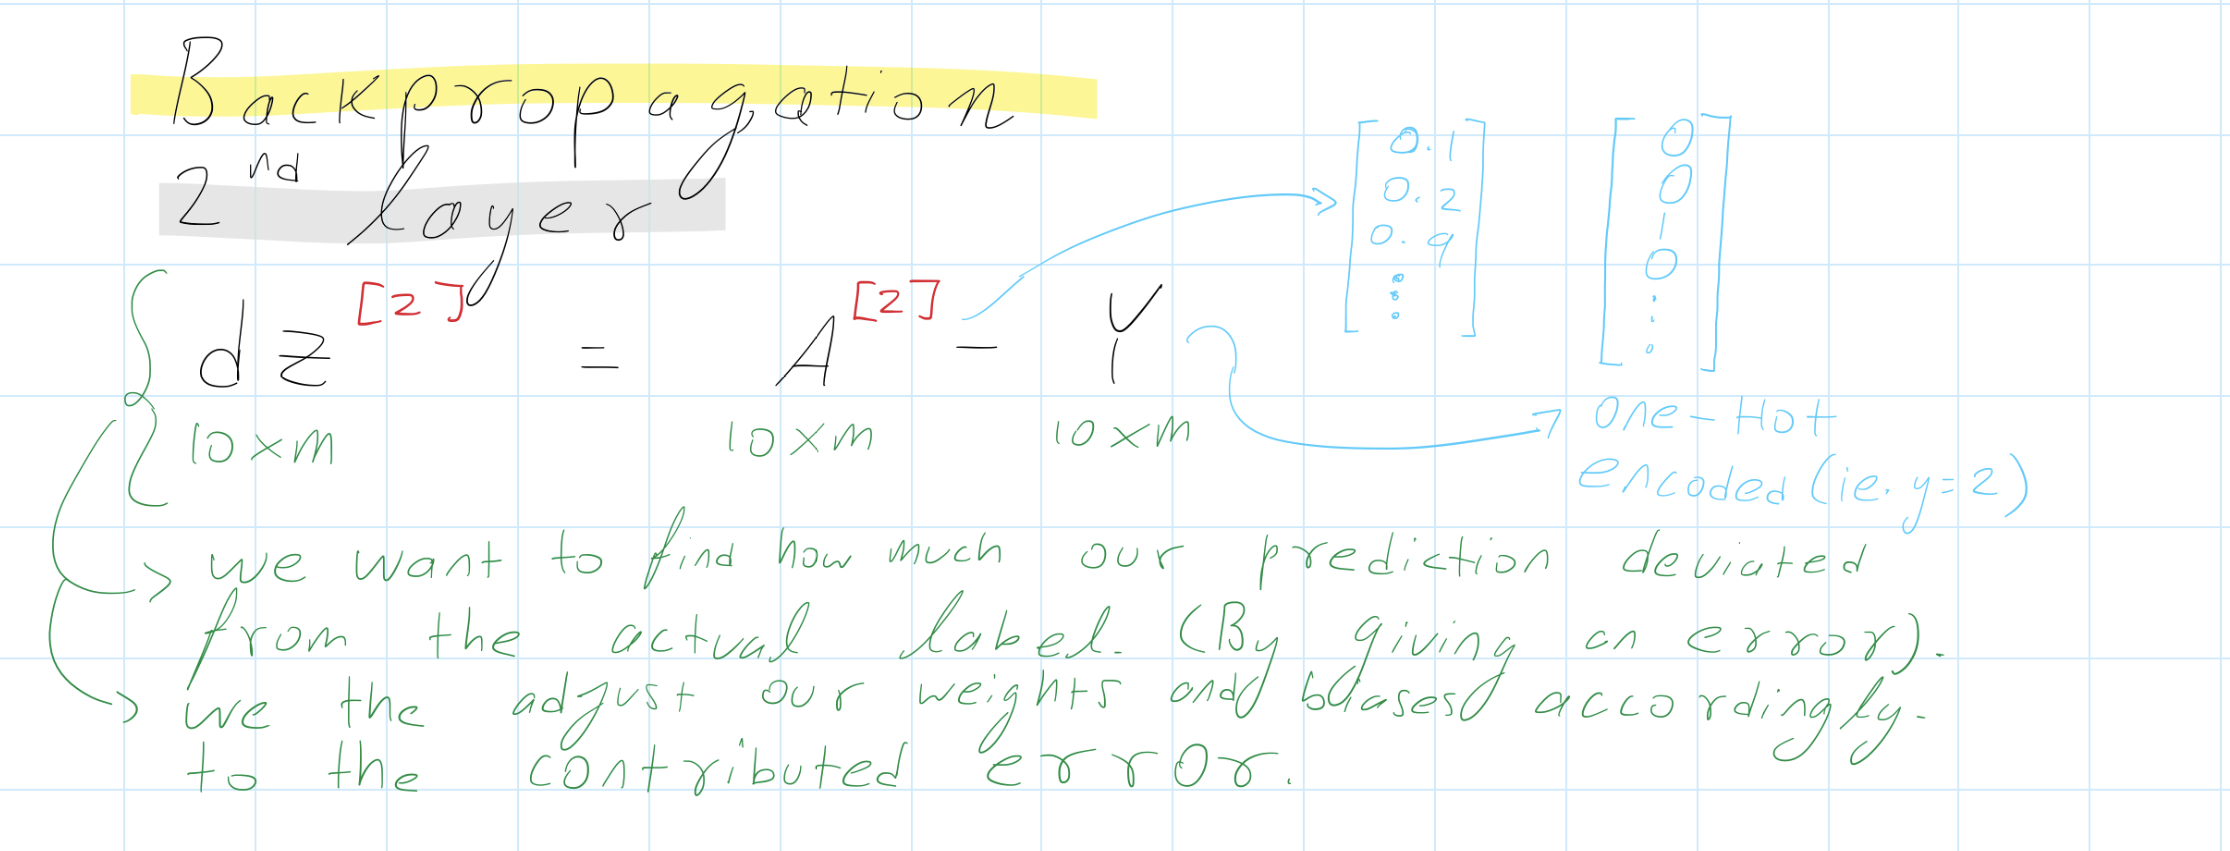 Backpropagation
2nd layer
dz[2] = A[2] - Y
10xm 10xm 10xm
[0.1
0.2
0.9
⋮]
[0
0
1
0
⋮]
one-Hot
encoded (ie. y=2)
we want to find how much our prediction deviated
from the actual label. (By giving an error).
we the adjust our weights and biases accordingly.
to the contributed error.